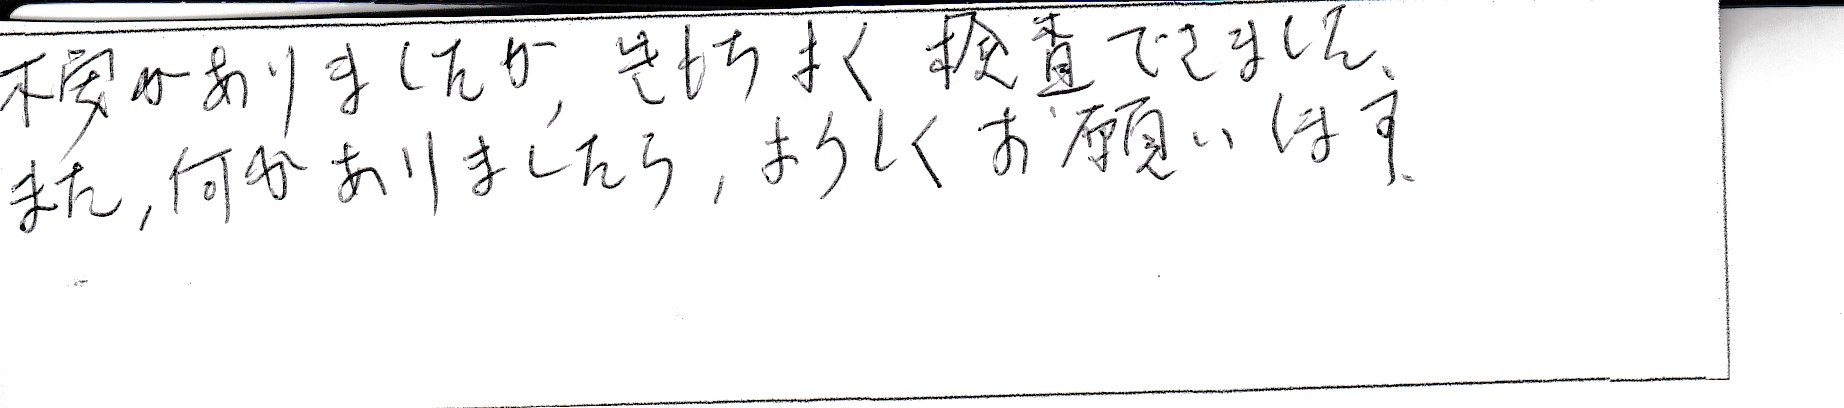 不安がありましたが、きもちよく検査できました、
また、何かありましたら、よろしくお願いします、